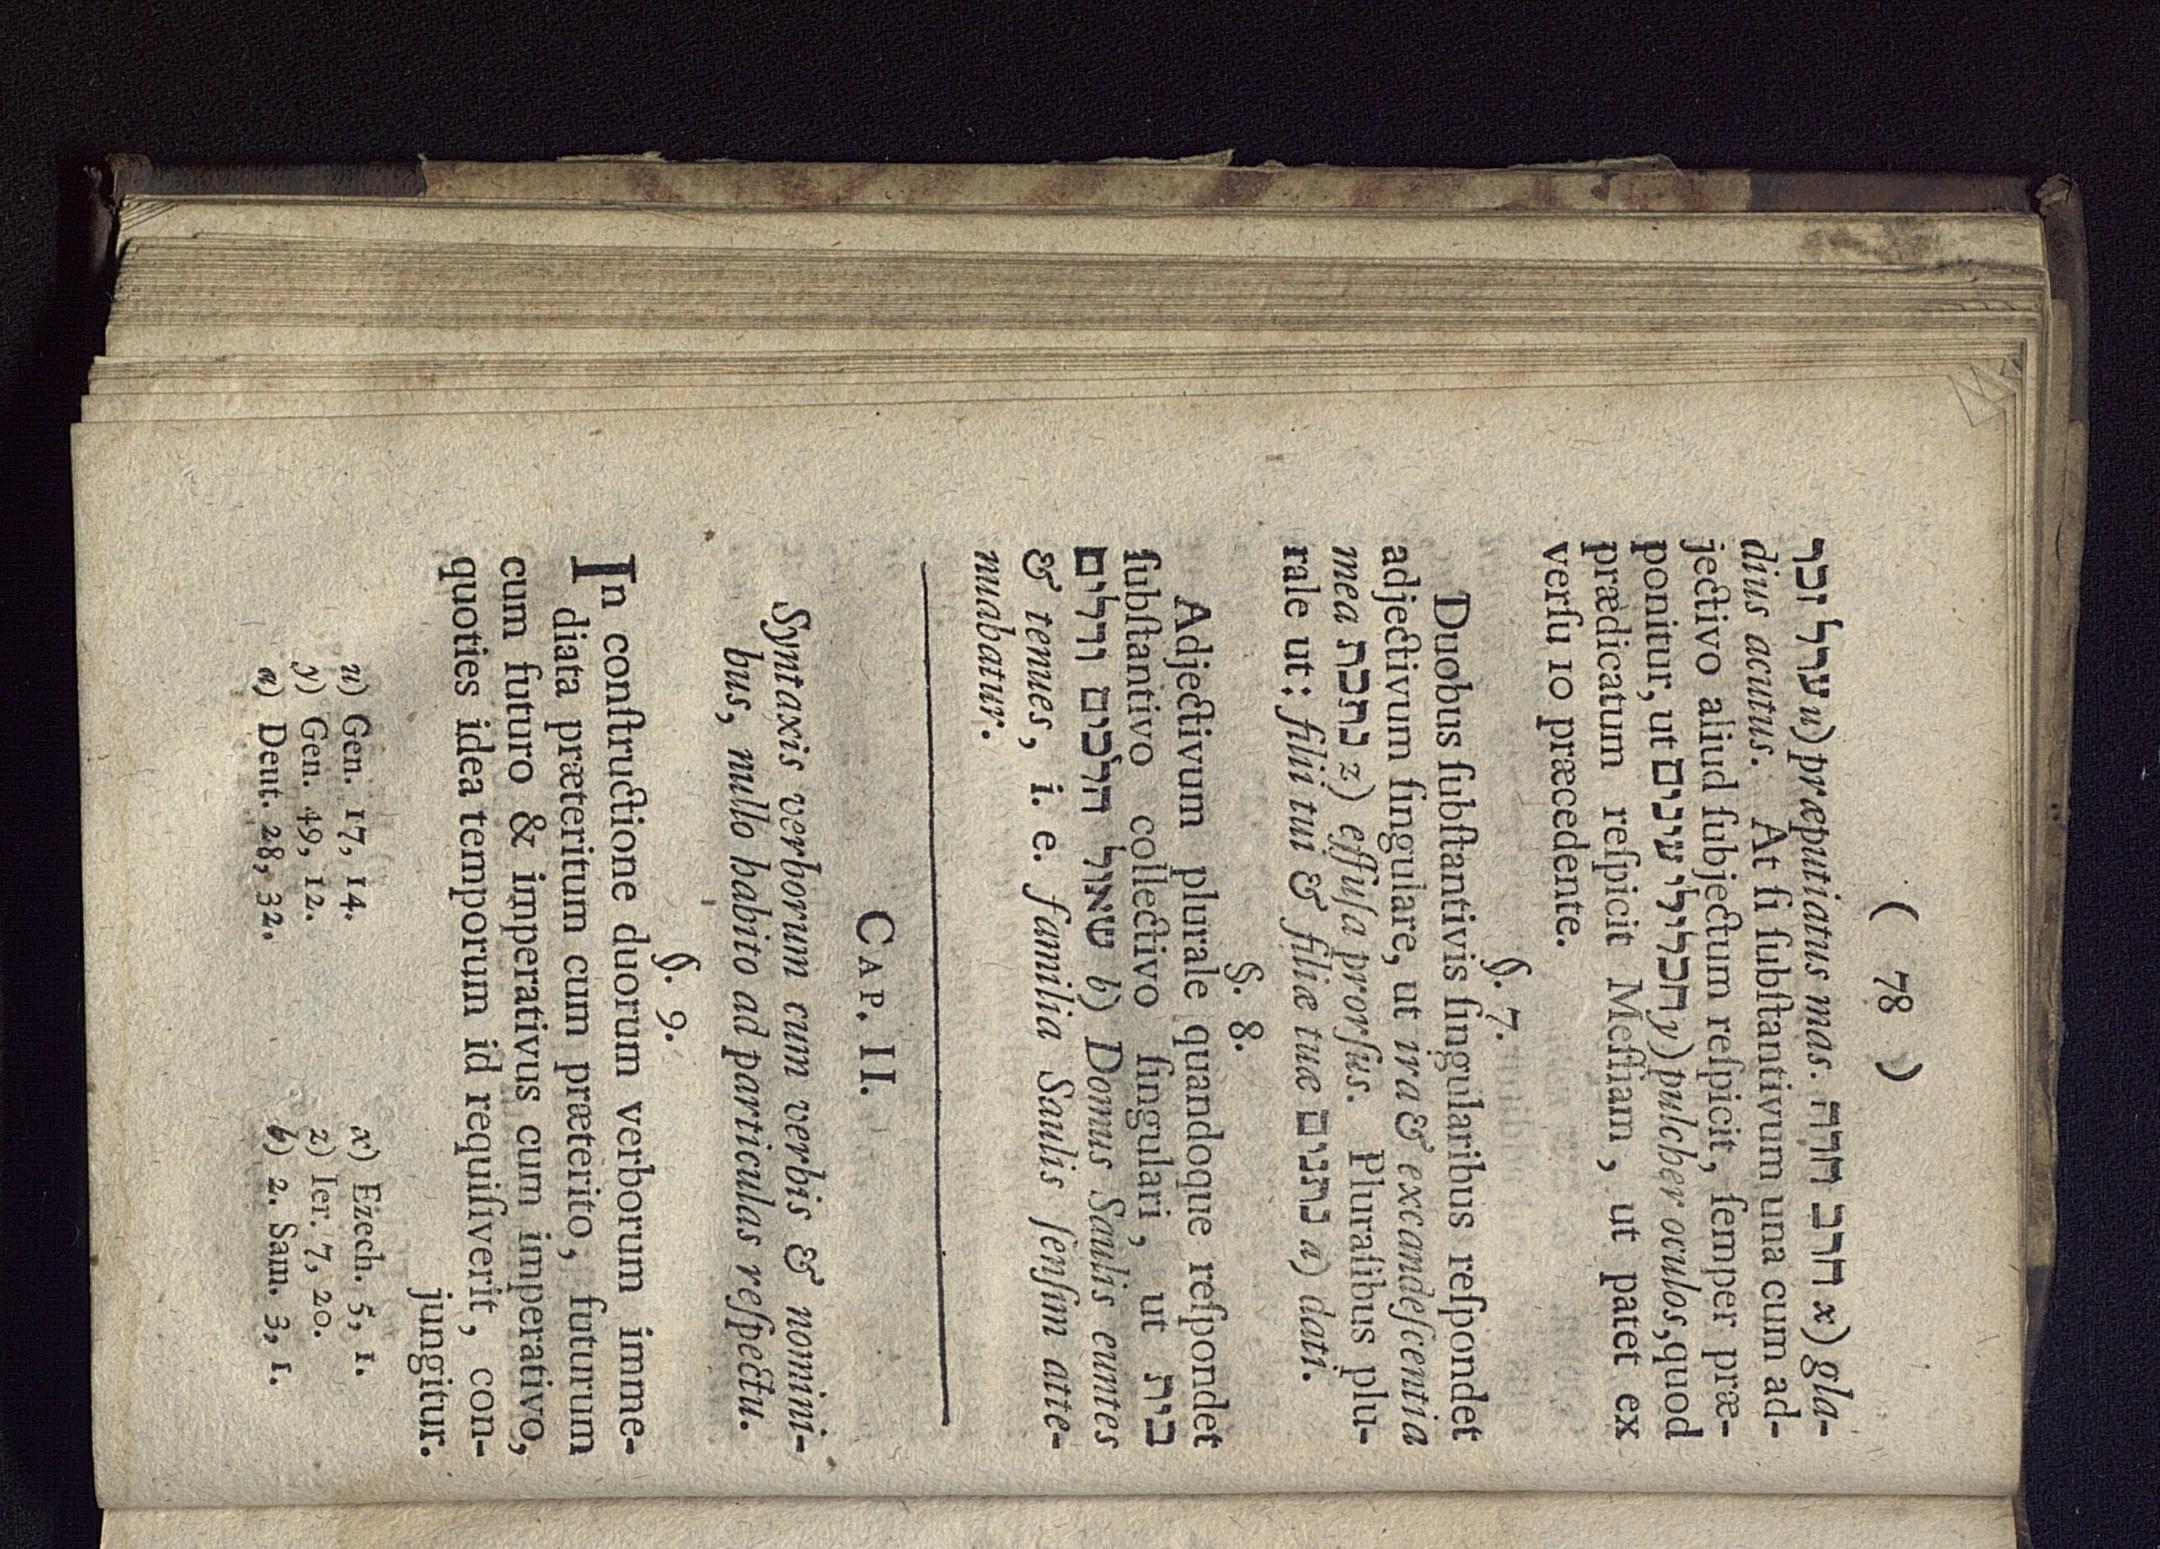 ( 78 )
ערל זכר u) præputiatus mas. חרב חדה x) gla-
dius acutus. At ſi ſubſtantivum una cum ad-
jectivo aliud ſubjectum reſpicit, ſemper præ-
ponitur, ut חכלילי עינים y) pulcher oculos, quod
prædicatum reſpicit Meſſiam, ut patet ex
verſu 10 præcedente.
§. 7.
Duobus ſubſtantivis ſingularibus reſpondet
adjectivum ſingulare, ut ira & excandeſcentia
mea נתכת z) effuſa prorſus. Pluralibus plu-
rale ut: filii tui & filiæ tuæ נתנים a) dati.
§. 8.
Adjectivum plurale quandoque reſpondet
ſubſtantivo collectivo ſingulari, ut בית
שאול הלכים ודלים b) Domus Saulis euntes
& tenues, i. e. familia Saulis ſenſim atte-
nuabatur.
CAP. II.
Syntaxis verborum cum verbis & nomini-
bus, nullo habito ad particulas reſpectu.
§. 9.
In conſtructione duorum verborum imme-
diata præteritum cum præterito, futurum
cum futuro & imperativus cum imperativo,
quoties idea temporum id requiſiverit, con-
jungitur.
u) Gen. 17, 14. x) Ezech. 5, 1.
y) Gen. 49, 12. z) Ier. 7, 20.
a) Deut. 28, 32. b) 2. Sam. 3, 1.